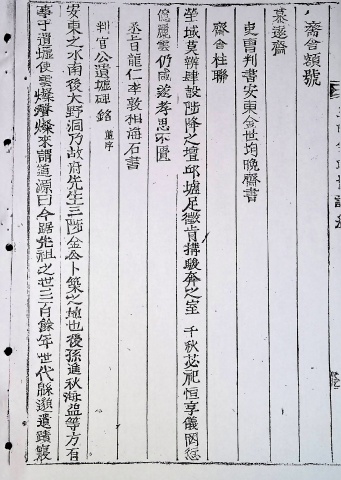 齋舍額號
慕遠齋
吏曹判書安東金世均晩齋書
齋舍柱聯
塋域莫辨肆設陟降之壇邱墟足徵肯搆駿奔之室 千秋苾祀恒享儀罔愆
僾麗雲仍咸遂孝思不匱
丞旨龍仁李敦相海石書
判官公遺墟碑銘 並序
安東之水南後大野洞乃故府先生三陟金公卜築之地也後孫進秋海益等方有
事于遺墟使雲燦 燦來謂道源曰今距先祖之世三百餘年世代緜邈遺蹟寢